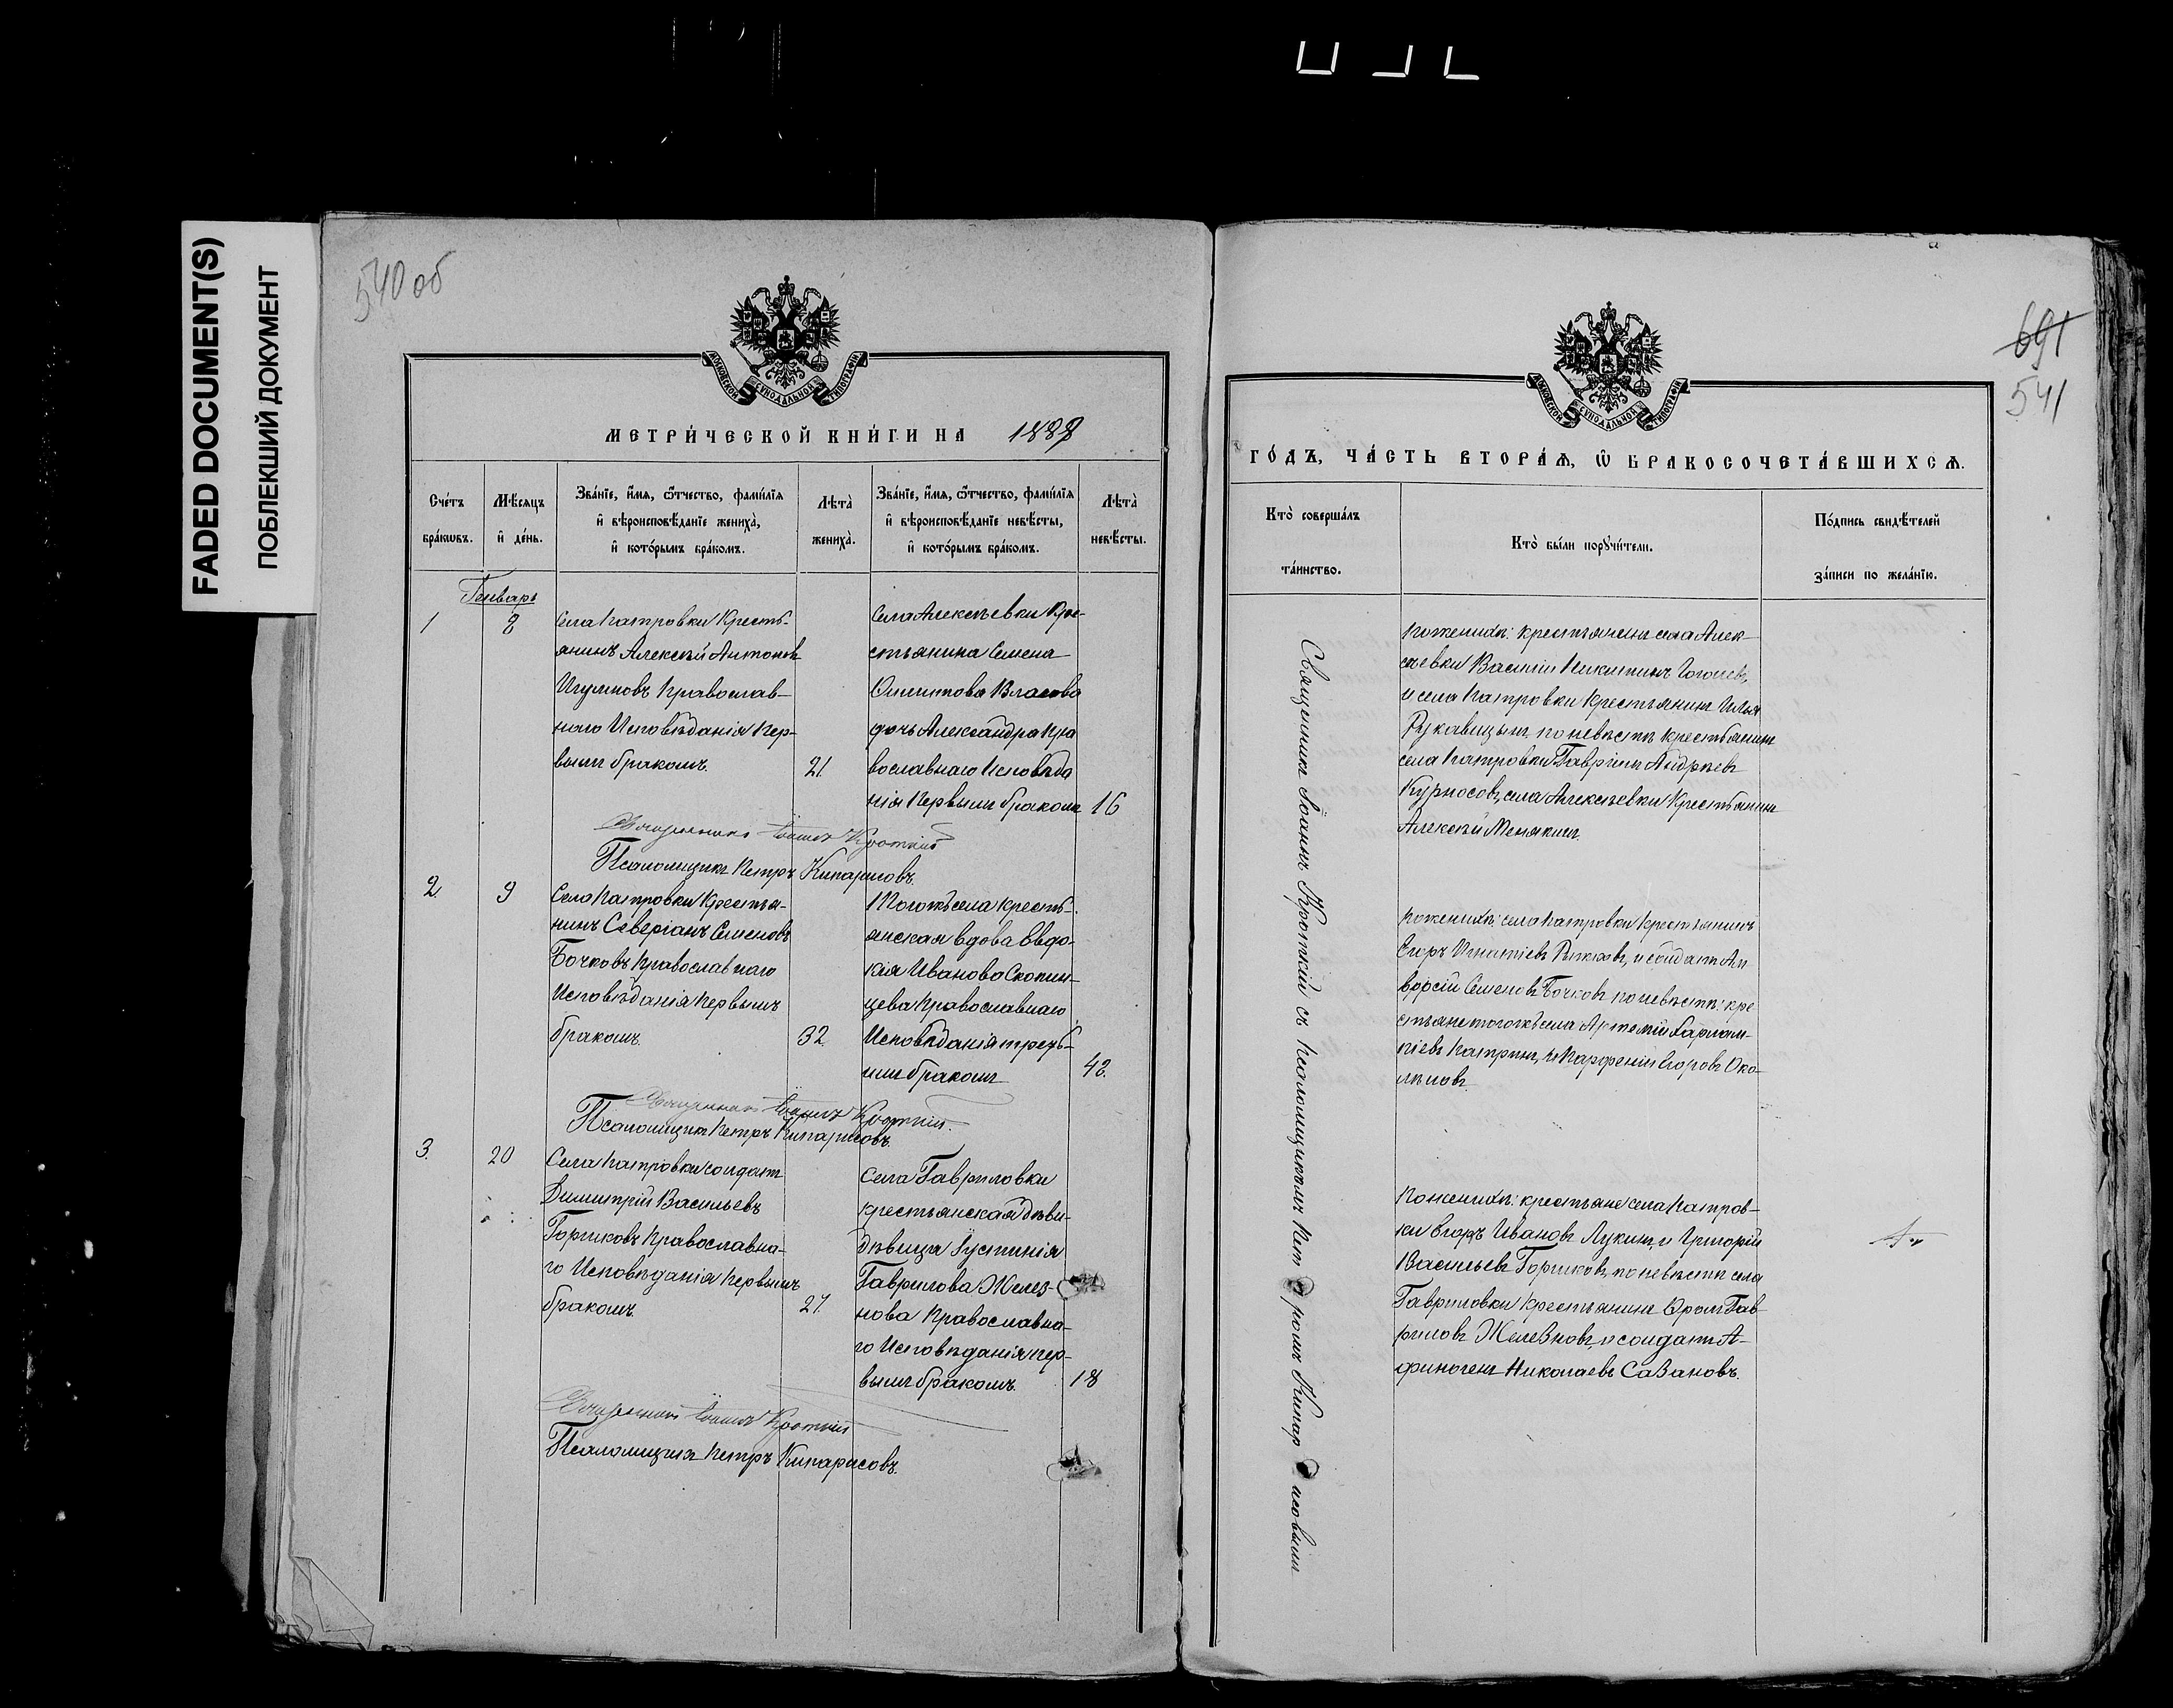 FADED DOCUMENT(S)
ПОБЛЕКШИЙ ДОКУМЕНТ
540 об
МОСКОВСКОЙ СѴНОДАЛЬНОЙ ТИПОГРАФІИ
МЕТРИ́ЧЕСКОЙ КНИ́ГИ НА 1888
Сче́тъ бра́кѡвъ.
Мѣ́сяцъ и҆ де́нь.
Зва́нїе, и҆́мя, ѻ҆́тчество, фами́лїя и҆ вѣроисповѣ́данїе жениха̀, и҆ кото́рымъ бра́комъ.
Лѣта̀ жениха̀.
Зва́нїе, и҆́мя, ѻ҆́тчество, фами́лїя и҆ вѣроисповѣ́данїе невѣ́сты, и҆ кото́рымъ бра́комъ.
Лѣта̀ невѣ́сты.
Генварь
1
8
Села Патровки Кресть-
янинъ Алексѣй Антоновъ
Игумновъ Православ-
наго Исповѣданія Пер-
вымъ бракомъ.
21.
Села Алексѣевки Кре-
стьянина Семена
Филипова Власова
дочь Александра Пра
вославнаго Исповѣда
нія Первымъ бракомъ
16
Священникъ Іоаннъ Кроткій
Псаломщикъ Петръ Кипарисовъ.
2.
9
Села Патровки Крестья-
нинъ Северіанъ Семеновъ
Бочковъ Православнаго
Исповѣданія Первымъ
бракомъ.
32.
Тогожъ села Кресть-
янская вдова Евдо-
кія Иванова Скопин-
цева Православнаго
Исповѣданія треть-
имъ бракомъ
42.
Священникъ Іоаннъ Кроткій.
Псаломщикъ Петръ Кипарисовъ.
3.
20
Села Патровки солдатъ
Димитрій Васильевъ
Горшковъ Православна-
го Исповѣданія Первымъ
бракомъ.
27.
Села Гавриловки
крестьянская дѣви-
дѣвица Іустинія
Гаврилова Желез-
нова Православна-
го Исповѣданія пер-
вымъ бракомъ.
18
Священникъ Іоаннъ Кроткій
Псаломщикъ Петръ Кипарисовъ.
691
541
МОСКОВСКОЙ СѴНОДАЛЬНОЙ ТИПОГРАФІИ
ГО́ДЪ, ЧА́СТЬ ВТОРА́Ѧ, Ѽ БРАКОСОЧЕТА́ВШИХСѦ.
Кто̀ соверша́лъ
та́инство.
Кто̀ бы́ли порꙋчи́тели.
По́дпись свидѣ́телей
за́писи по жела́нїю.
Священникъ Іоаннъ Кроткій съ псаломщикомъ Петромъ Кипарисовымъ
По женихѣ: крестьянинъ села Алек-
сѣевки Василій Никитинъ Гоголевъ,
и села Патровки Крестьянинъ Илья
Рукавицынъ. по невѣстѣ крестьянинъ
села Патровки Гавріилъ Андреевъ
Курносовъ, села Алексѣевки Крестьянинъ
Алексѣй Менякинъ.
По женихѣ: села Патровки Крестьянинъ
Егоръ Игнатіевъ, и солдатъ Ам
вросій Семеновъ Бочковъ по невѣстѣ: кре
стьяне тогожъ села Артемій Харлам-
піевъ Патринъ, и Парфеній Егоровъ Око-
лѣловъ.
По женихѣ: крестьяне села Патров-
ки Егоръ Ивановъ Лукинъ, и Григорій
Васильевъ Горшковъ, по невѣстѣ села
Гавриловки Крестьянинъ Фролъ Гав-
риловъ Железновъ, и солдатъ А-
финогенъ Николаевъ Сазановъ.